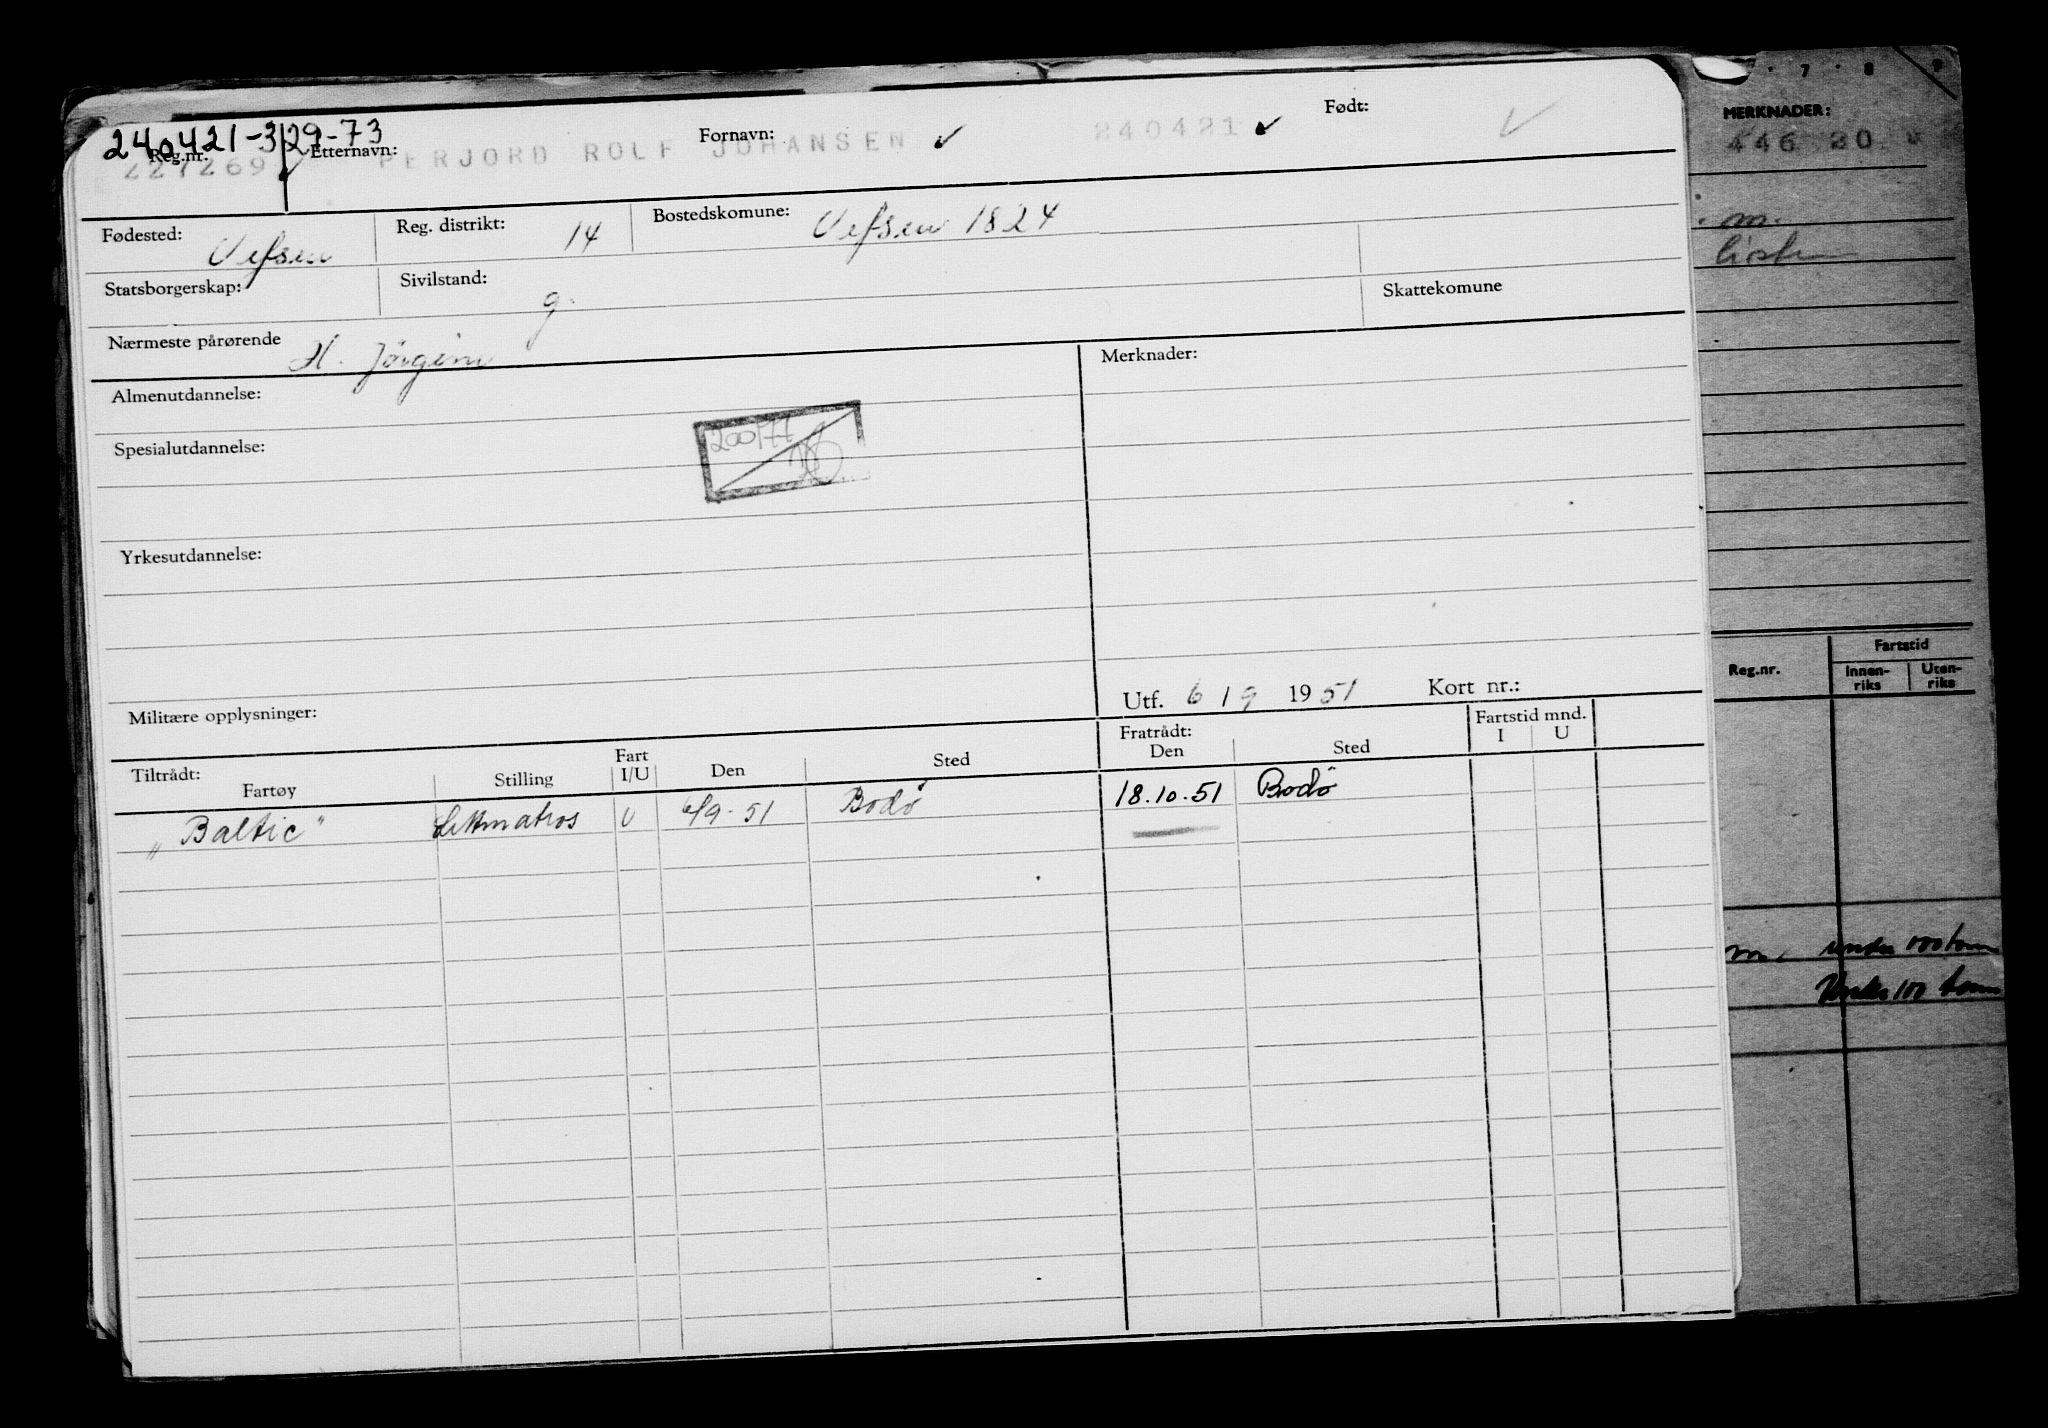 240421-32973
Reg.nr. Etternavn: Fornavn: Født:
227269 PERJORD ROLF JOHANSEN 240421
Fødested: Vefsen Reg. distrikt: 14 Bostedskomune: Vefsen 1824
Statsborgerskap: Sivilstand: g. Skattekomune
Nærmeste pårørende H. Jörgine
Almenutdannelse: Merknader:
200/77
Spesialutdannelse:
Yrkesutdannelse:
Utf. 6/9 1951 Kort nr.:
Militære opplysninger:
Tiltrådt: Fartøy Stilling Fart I/U Den Sted Fratrådt: Den Sted Fartstid mnd. I U
„Baltic" Lettmatros U 6/9-51 Bodø 18.10.51 Bodø
7 · 8 9
MERKNADER:
446 20
m.
Reg.nr. Fartstid
Innen-riks Uten-riks
m. under 100 tonn
Under 100 tonn